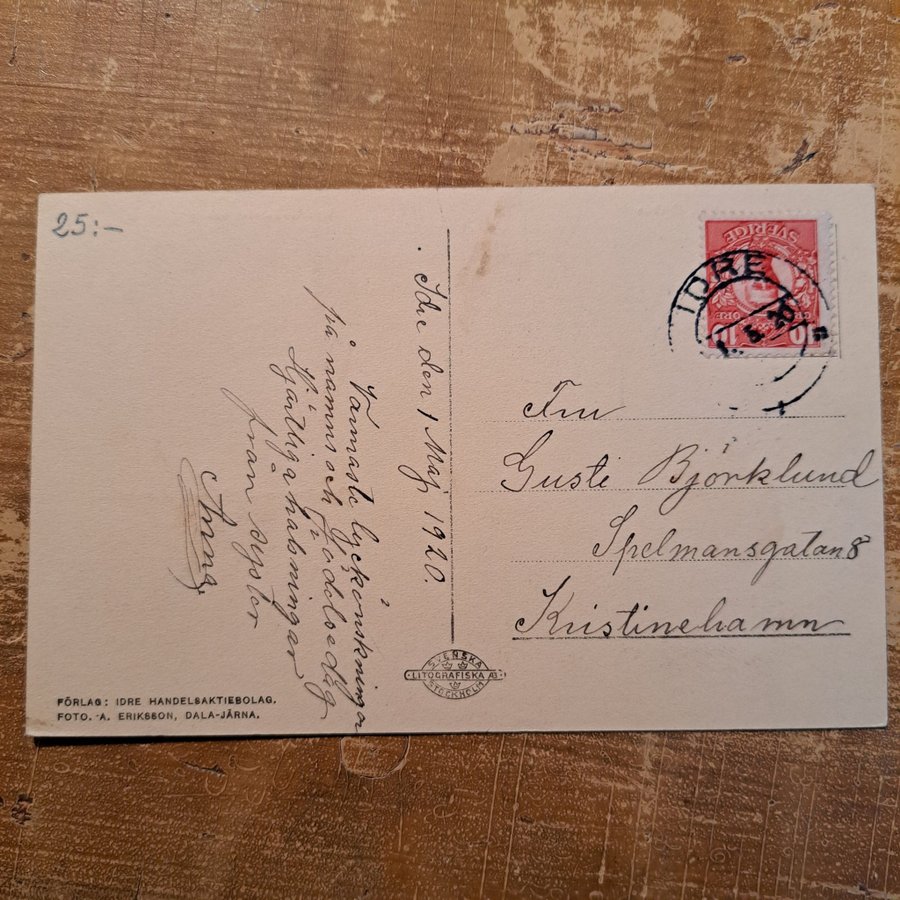 25:-
Idre den 1 Maj 1920.
Varmaste lyckönskningar
på namns och födelsedag
Hjärtliga hälsningar
från syster
Anna.
SVERIGE
10 ÖRE 10
IDRE
1. 5. 20
Fru
Gusti Björklund
Spelmansgatan 8
Kristinehamn
SVENSKA
LITOGRAFISKA AB
STOCKHOLM
FÖRLAG: IDRE HANDELSAKTIEBOLAG.
FOTO. A. ERIKSSON, DALA-JÄRNA.